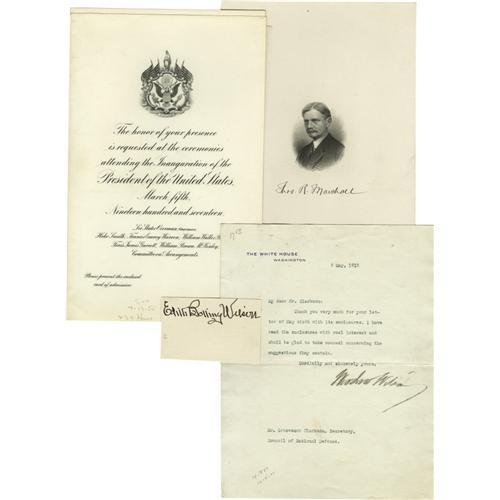 The honor of your presence
is requested at the ceremonies
attending the Inauguration of the
President of the United States
March fifth
Nineteen hundred and seventeen
Lee Slater Overman, Chairman
Hoke Smith, Francis Emory Warren, William Willis
Finis James Garrett, William Brown McKinley,
Committee on Arrangements.
Please present the enclosed
card of admission
Thos. R. Marshall
THE WHITE HOUSE
WASHINGTON
8 May, 1918
My dear Mr. Clarkson:
Thank you very much for your let-
ter of May sixth with its enclosures. I have
read the enclosures with real interest and
shall be glad to take counsel concerning the
suggestions they contain.
Cordially and sincerely yours,
Woodrow Wilson
Mr. Grosvenor Clarkson, Secretary,
Council of National Defense.
Edith Bolling Wilson